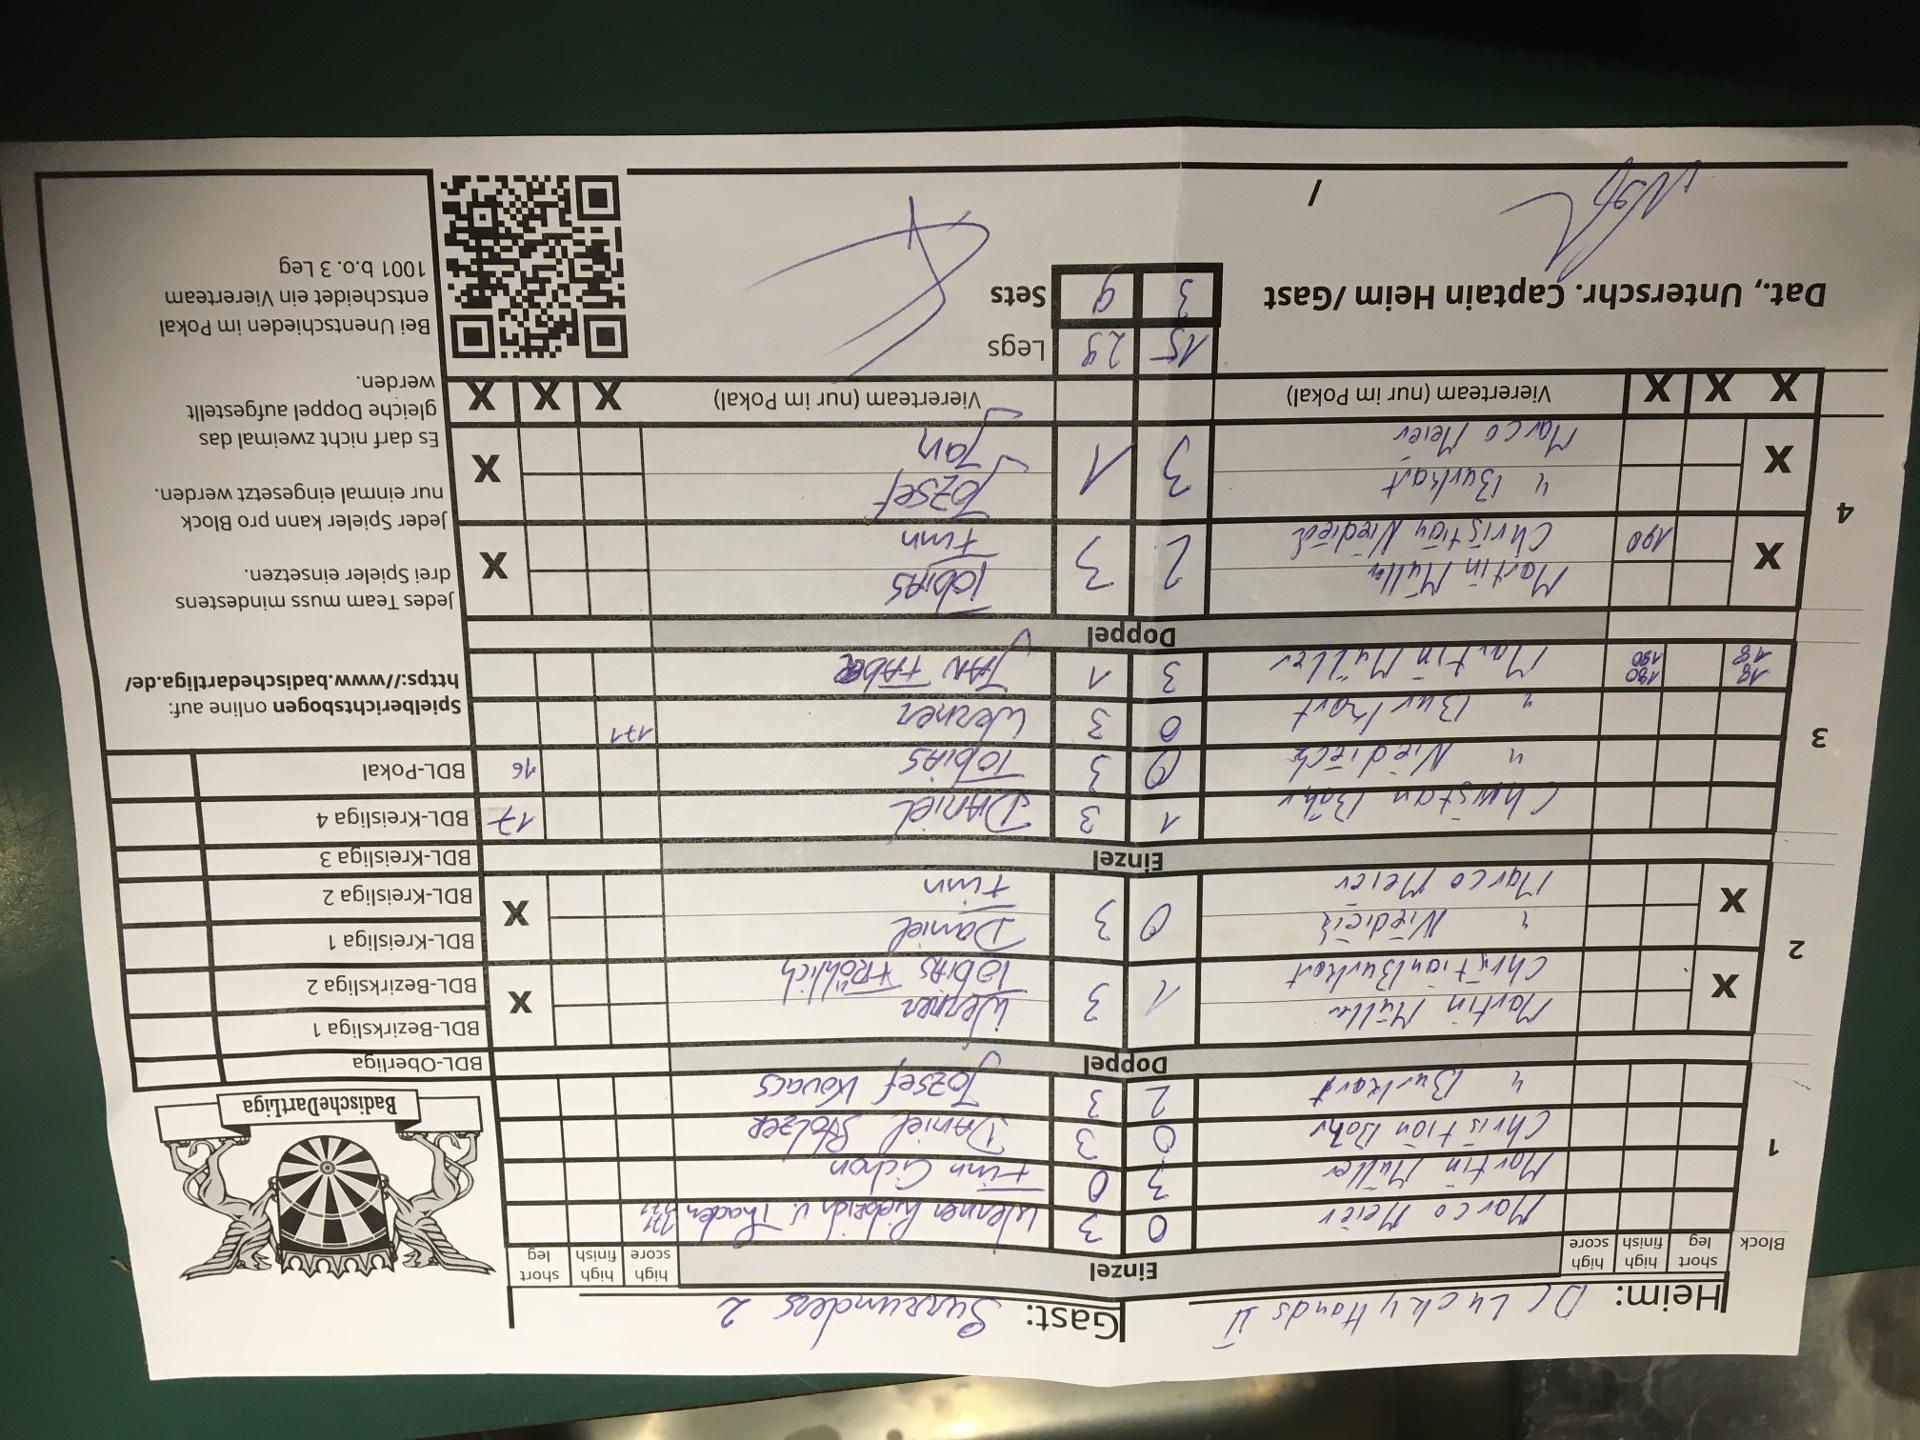 Heim: DC Lucky Hands II Gast: Surrunders 2
Block short leg high finish high score Einzel high score high finish short leg
1
Marco Meier 0 3 Werner Liebreich v. Thaden 171 177
Martin Müller 3 0 Finn Cichon
Christian Bohr 0 3 Daniel Stolzer
" Burkart 2 3 Jozsef Kovacs
Doppel
2
X Martin Müller 1 3 Werner X
Christian Burkart Tobias Fröhlich
X " Niediek 0 3 Daniel X
Marco Meier Finn
Einzel
3
Christian Bohr 1 3 Daniel 17
" Niedieck 0 3 Tobias 16
" Burkart 0 3 Werner 171
18 18 180 180 Martin Müller 3 1 Jan Faber
Doppel
4
X Martin Müller 2 3 Tobias X
180 Christian Niediek Finn
X " Burkart 3 1 Jozsef X
Marco Meier Jan
X X X Vierterteam (nur im Pokal) Viererteam (nur im Pokal) X X X
15 29 Legs
3 9 Sets
Dat., Unterschr. Captain Heim/Gast
/
BadischeDartLiga
BDL-Oberliga
BDL-Bezirksliga 1
BDL-Bezirksliga 2
BDL-Kreisliga 1
BDL-Kreisliga 2
BDL-Kreisliga 3
BDL-Kreisliga 4
BDL-Pokal
Spielberichtsbogen online auf:
https://www.badischedartliga.de/
Jedes Team muss mindestens
drei Spieler einsetzen.
Jeder Spieler kann pro Block
nur einmal eingesetzt werden.
Es darf nicht zweimal das
gleiche Doppel aufgestellt
werden.
Bei Unentschieden im Pokal
entscheidet ein Viererteam
1001 b.o.3 Leg